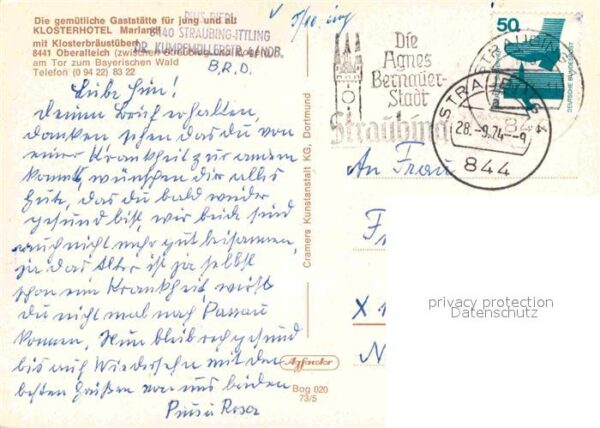 Die gemütliche Gaststätte für jung und alt
KLOSTERHOTEL Mariandl
mit Klosterbräustüberl
8441 Oberalteich zwischen Straubing und Bogen
am Tor zum Bayerischen Wald
Telefon (0 94 22) 83 22
PIUS RIEDL
8440 STRAUBING-ITTLING
DR. KUMPFMÜLLERSTR.
B.R.D.
Liebe
Deinen Brief erhalten,
danken schon das du von
einer Krankheit zur andern
kommst, wünschen dir alles
Gute, das du bald wieder
gesund bist, wir beide sind
auch nicht mehr gut beisammen,
ja das Alter ist ja selbst
schon ein Krankheit, wirst
du nicht mal nach Passau
kommen, Nun bleib recht gesund
bis auf Wiedersehn mit den
besten Grüßen von uns beiden
Pius u Rosa
Cramers Kunstanstalt KG, Dortmund
Agfacolor
Bog 020
73/5
Die
Agnes
Bernauer-
Stadt
Straubing
50
DEUTSCHE BUNDESPOST
STRAUBING 4
28.-9.74--9
844
An Frau
F
X 1
N
privacy protection
Datenschutz